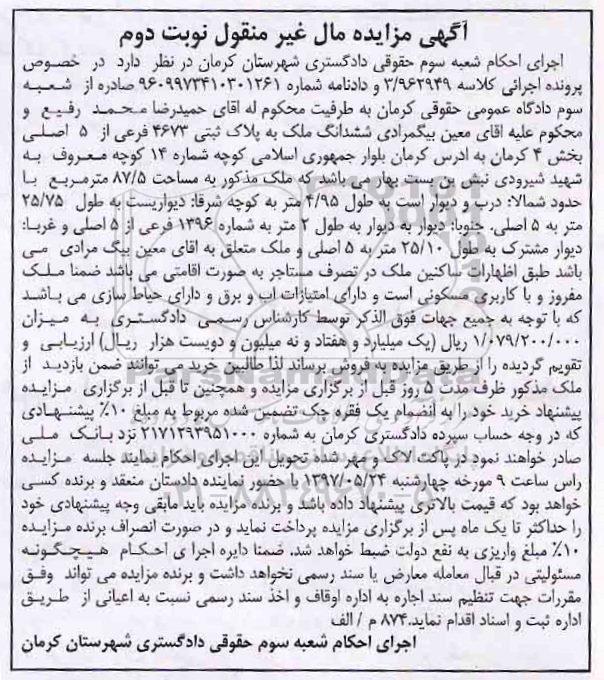 آگهی مزایده مال غیر منقول نوبت دوم
اجرای احکام شعبه سوم حقوقی دادگستری شهرستان کرمان در نظر دارد در خصوص
پرونده اجرائی کلاسه ۳/۹۶۳۹۴۹ و دادنامه شماره ۹۶۰۹۹۷۳۴۱۰۳۰۱۲۶۱ صادره از شعبه
سوم دادگاه عمومی حقوقی کرمان به طرفیت محکوم له اقای حمیدرضا محمد رفیع و
محکوم علیه اقای معین بیگمرادی ششدانگ ملک به پلاک ثبتی ۴۶۷۳ فرعی از ۵ اصلی
بخش ۴ کرمان به ادرس کرمان بلوار جمهوری اسلامی کوچه شماره ۱۴ کوچه معروف به
شهید شیرودی نبش بن بست بهار می باشد که ملک مذکور به مساحت ۸۷/۵ مترمربع با
حدود شمالا: درب و دیوار است به طول ۴/۹۵ متر به کوچه شرقا: دیواریست به طول ۲۵/۷۵
متر به ۵ اصلی. جنوبا: دیوار به دیوار به طول ۲ متر به شماره ۱۳۹۶ فرعی از ۵ اصلی و غربا:
دیوار مشترک به طول ۲۵/۱۰ متر به ۵ اصلی و ملک متعلق به اقای معین بیگ مرادی می
باشد طبق اظهارات ساکنین ملک در تصرف مستاجر به صورت اقامتی می باشد ضمنا ملک
مفروز و با کاربری مسکونی است و دارای امتیازات اب و برق و دارای حیاط سازی می باشد
که با توجه به جمیع جهات فوق الذکر توسط کارشناس رسمی دادگستری به میزان
۱/۰۷۹/۲۰۰/۰۰۰ ریال (یک میلیارد و هفتاد و نه میلیون و دویست هزار ریال) ارزیابی و
تقویم گردیده را از طریق مزایده به فروش برساند لذا طالبین خرید می توانند ضمن بازدید از
ملک مذکور ظرف مدت ۵ روز قبل از برگزاری مزایده و همچنین تا قبل از برگزاری مزایده
پیشنهاد خرید خود را به انضمام یک فقره چک تضمین شده مربوط به مبلغ ۱۰٪ پیشنهادی
که در وجه حساب سپرده دادگستری کرمان به شماره ۲۱۷۱۲۹۳۹۵۱۰۰۰ نزد بانک ملی
صادر خواهند نمود در پاکت لاک و مهر شده تحویل این اجرای احکام نمایند جلسه مزایده
راس ساعت ۹ مورخه چهارشنبه ۱۳۹۷/۰۵/۲۴ با حضور نماینده دادستان منعقد و برنده کسی
خواهد بود که قیمت بالاتری پیشنهاد داده باشد و برنده مزایده باید مابقی وجه پیشنهادی خود
را حداکثر تا یک ماه پس از برگزاری مزایده پرداخت نماید و در صورت انصراف برنده مزایده
۱۰٪ مبلغ واریزی به نفع دولت ضبط خواهد شد. ضمنا دایره اجرا ی احکام هیچگونه
مسئولیتی در قبال معامله معارض یا سند رسمی نخواهد داشت و برنده مزایده می تواند وفق
مقررات جهت تنظیم سند اجاره به اداره اوقاف و اخذ سند رسمی نسبت به اعیانی از طریق
اداره ثبت و اسناد اقدام نماید.۸۷۴ م / الف
اجرای احکام شعبه سوم حقوقی دادگستری شهرستان کرمان